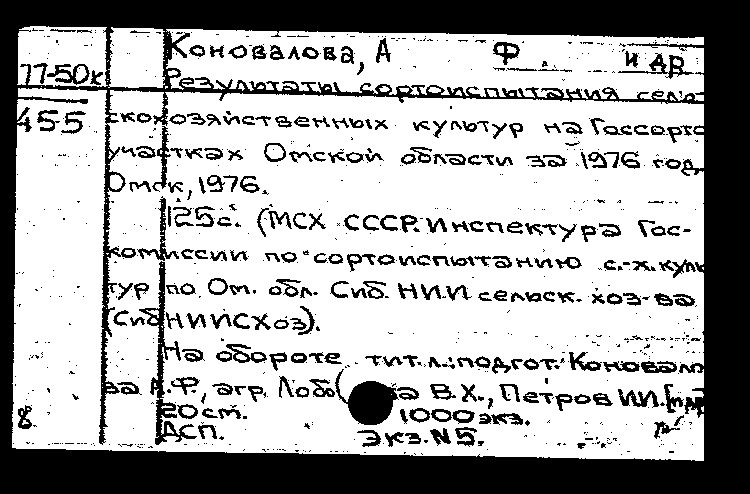 Коновалова, А Ф. и др
77-50к Результаты сортоиспытания сель-
455 скохозяйственных культур на Госсорто
участках Омской области за 1976 год.
Омск, 1976.
125с. (МСХ СССР. Инспектура Гос-
комиссии по сортоиспытанию с.-х. куль
тур по Ом. обл. Сиб. НИИ сельск. хоз-ва
(СибНИИСХоз).
На обороте тит. л.: подгот. Коновало
ва А.Ф., агр. В.Х., Петров И.И.
20см. 1000 экз.
8 ДСП. Экз. N 5.